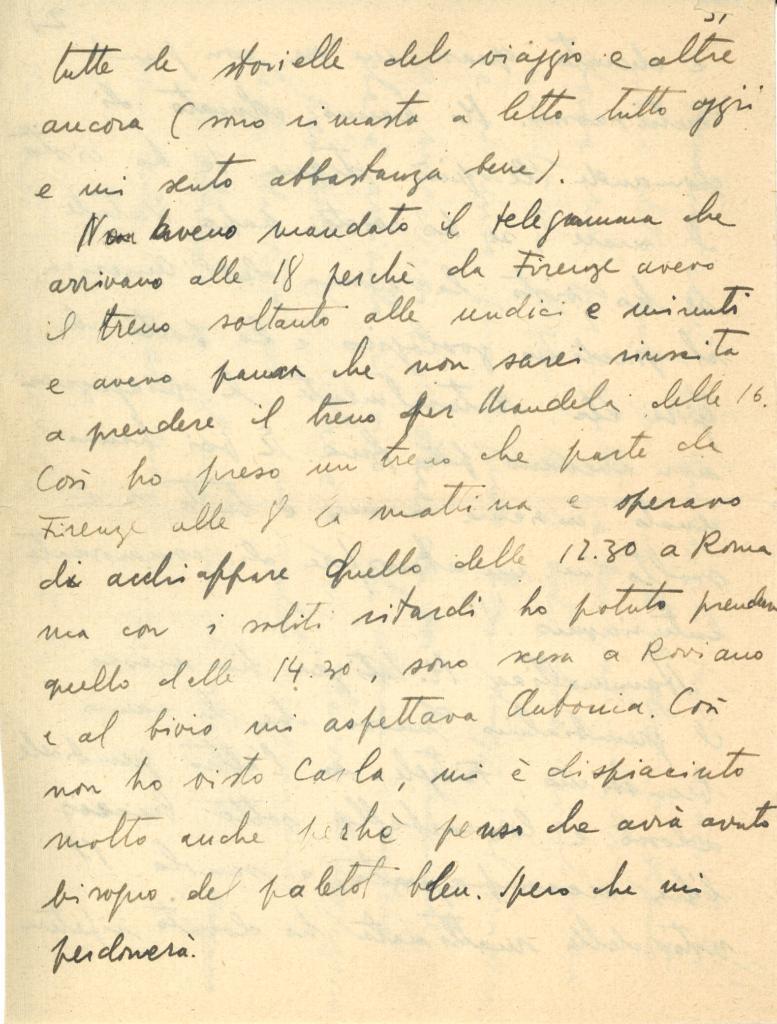 3)
tutte le storielle del viaggio e altre
ancora (sono rimasta a letto tutto oggi
e mi sento abbastanza bene).
Non avevo mandato il telegramma che
arrivavo alle 18 perchè da Firenze avevo
il treno soltanto alle undici e minuti
e avevo paura che non sarei riuscita
a prendere il treno per Mandela delle 16.
Così ho preso un treno che parte da
Firenze alle 8 la mattina e speravo
di acchiappare quello delle 12.30 a Roma
ma con i soliti ritardi ho potuto prendere
quello delle 14.30, sono scesa a Roviano
e al bivio mi aspettava Antonia. Così
non ho visto Carla, mi è dispiaciuto
molto anche perchè penso che avrà avuto
bisogno del paletot bleu. Spero che mi
perdonerà.